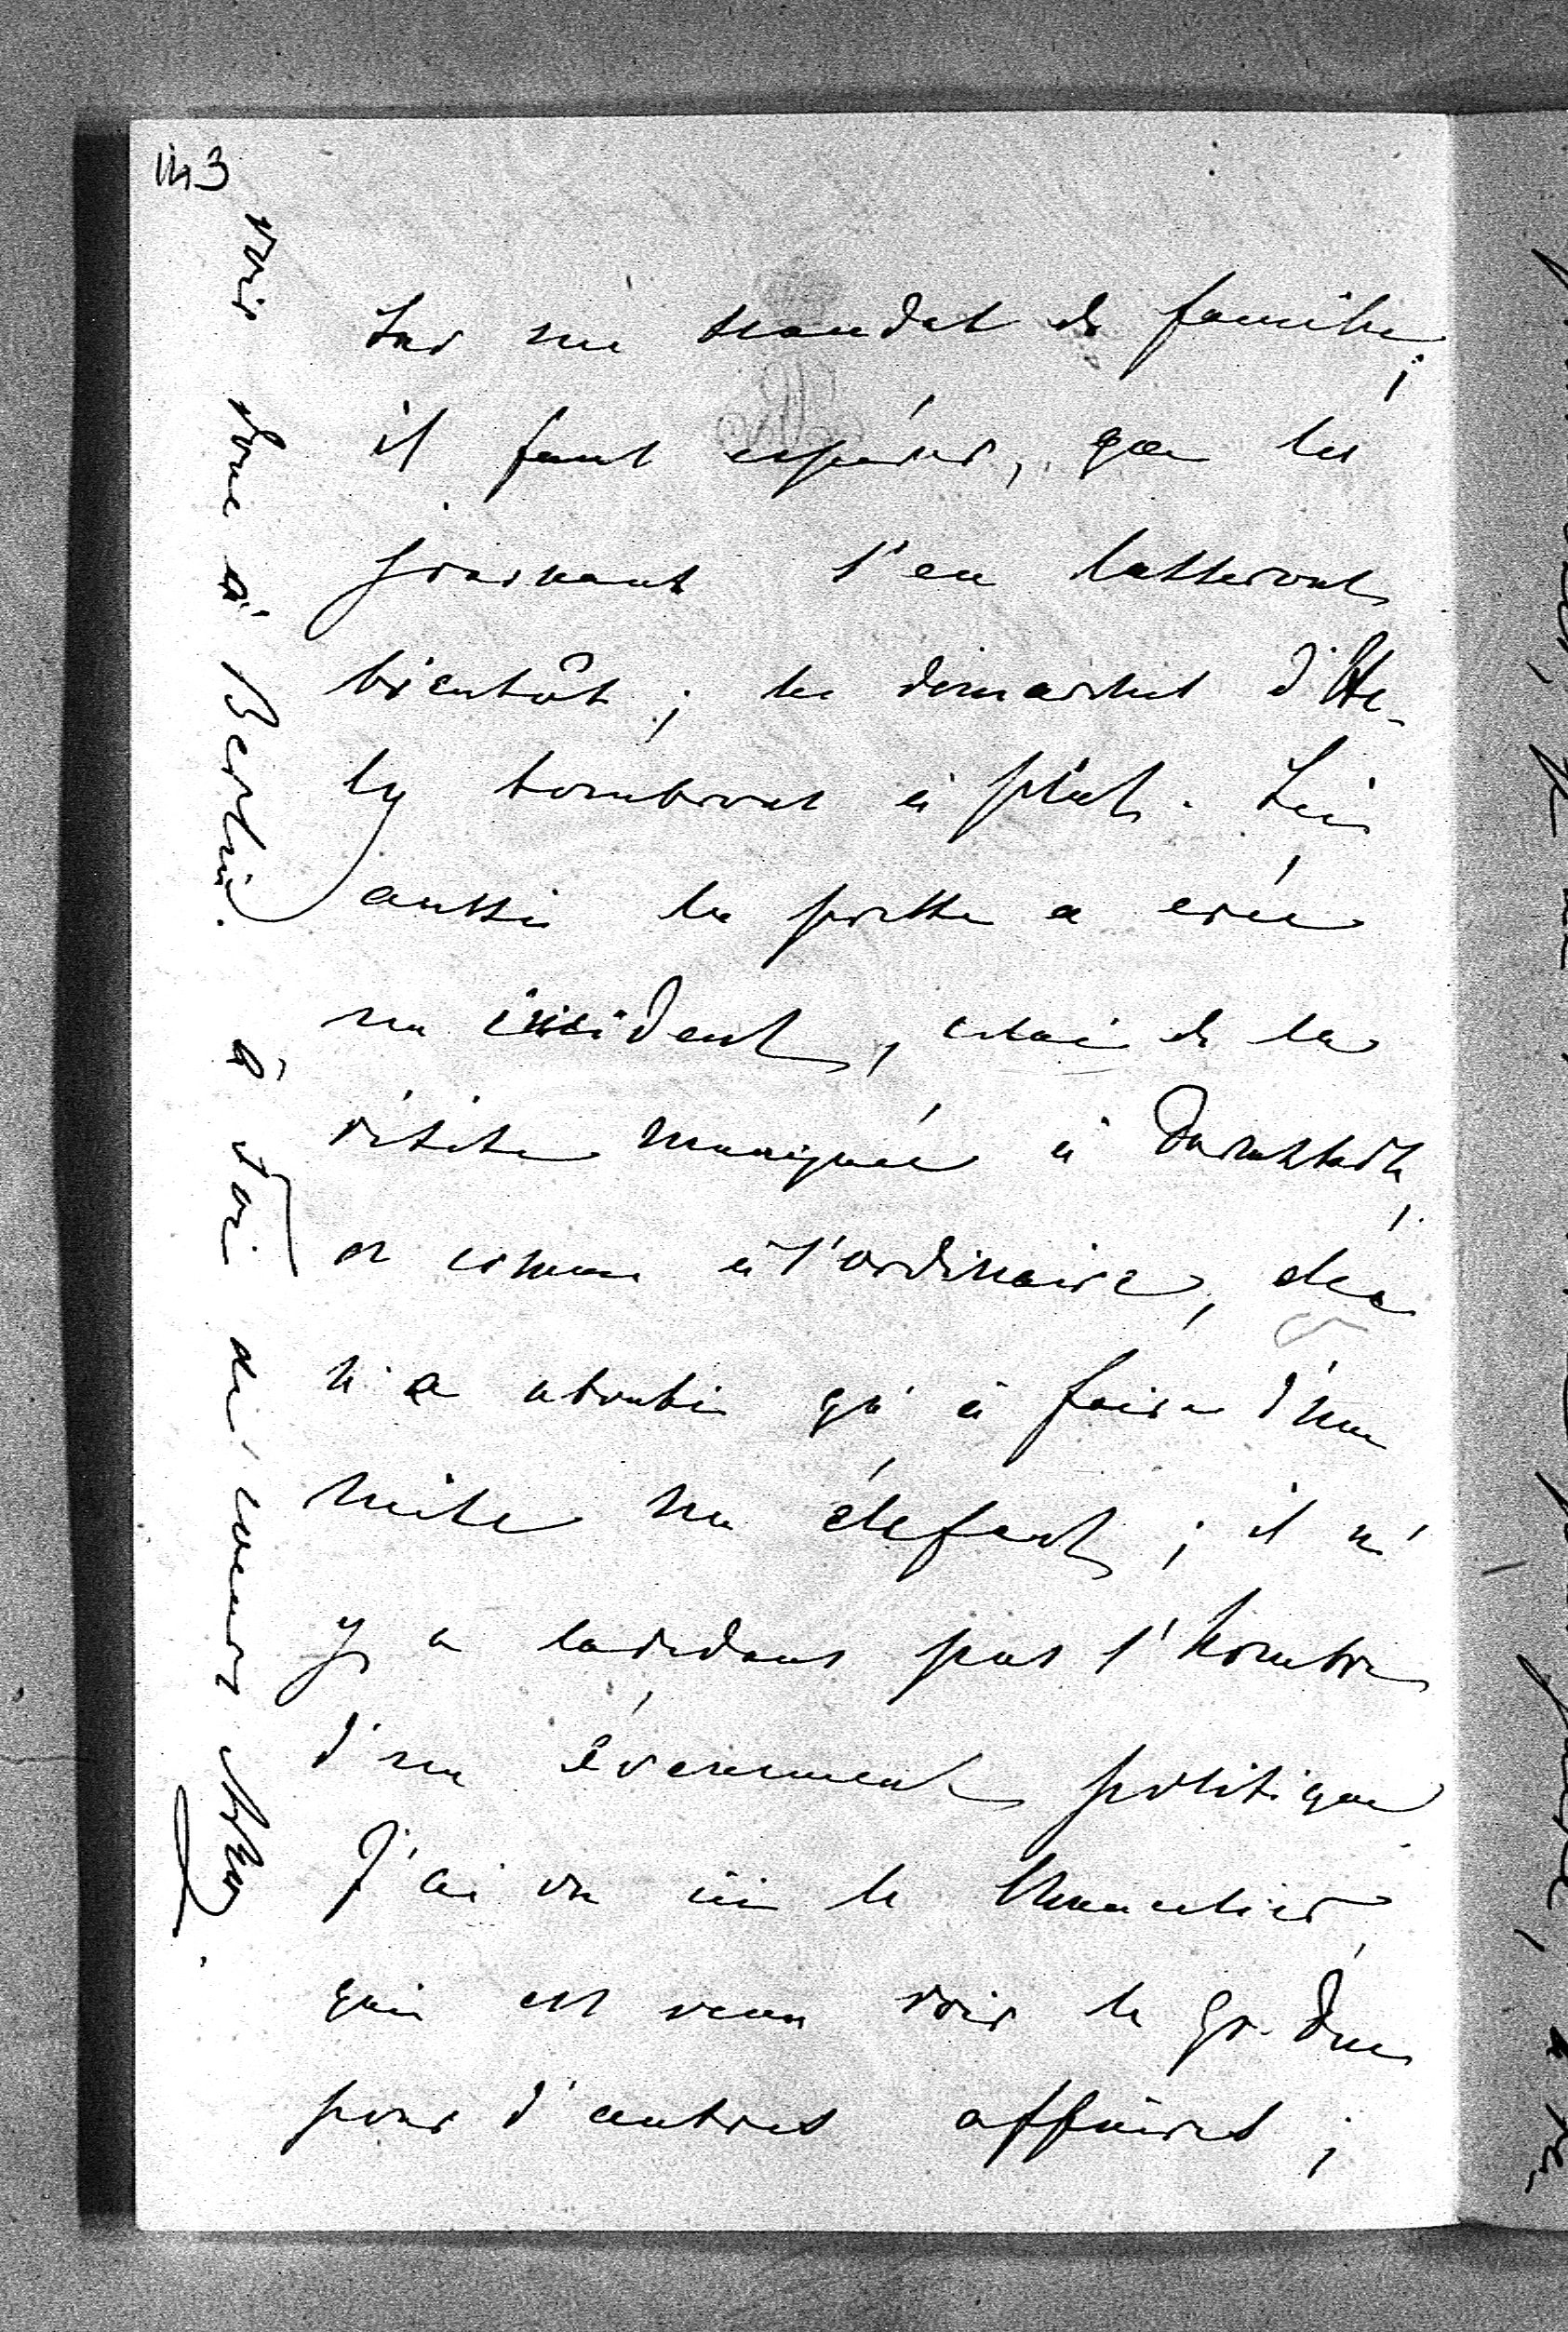 143
sur un scandal de famille;
il faut espérer, que les
journaux s'en lasseront
bientôt; les démarches d'He-
ly tomberont à plat. Ici
aussi la presse a crée
un incident, celui de la
visite manquée à Darmstadt,
et comme à l'ordinaire, cela
n'a abouti qu'à faire d'une
mite un éléfant; il n'
y a ladedans pas l'hombre
d'un évenement politique
J'ai vu ici le Chancelier,
qui est venu voir le Gr. Duc
pour d'autres affaires;
voir donc à Berlin. à Toi de coeur